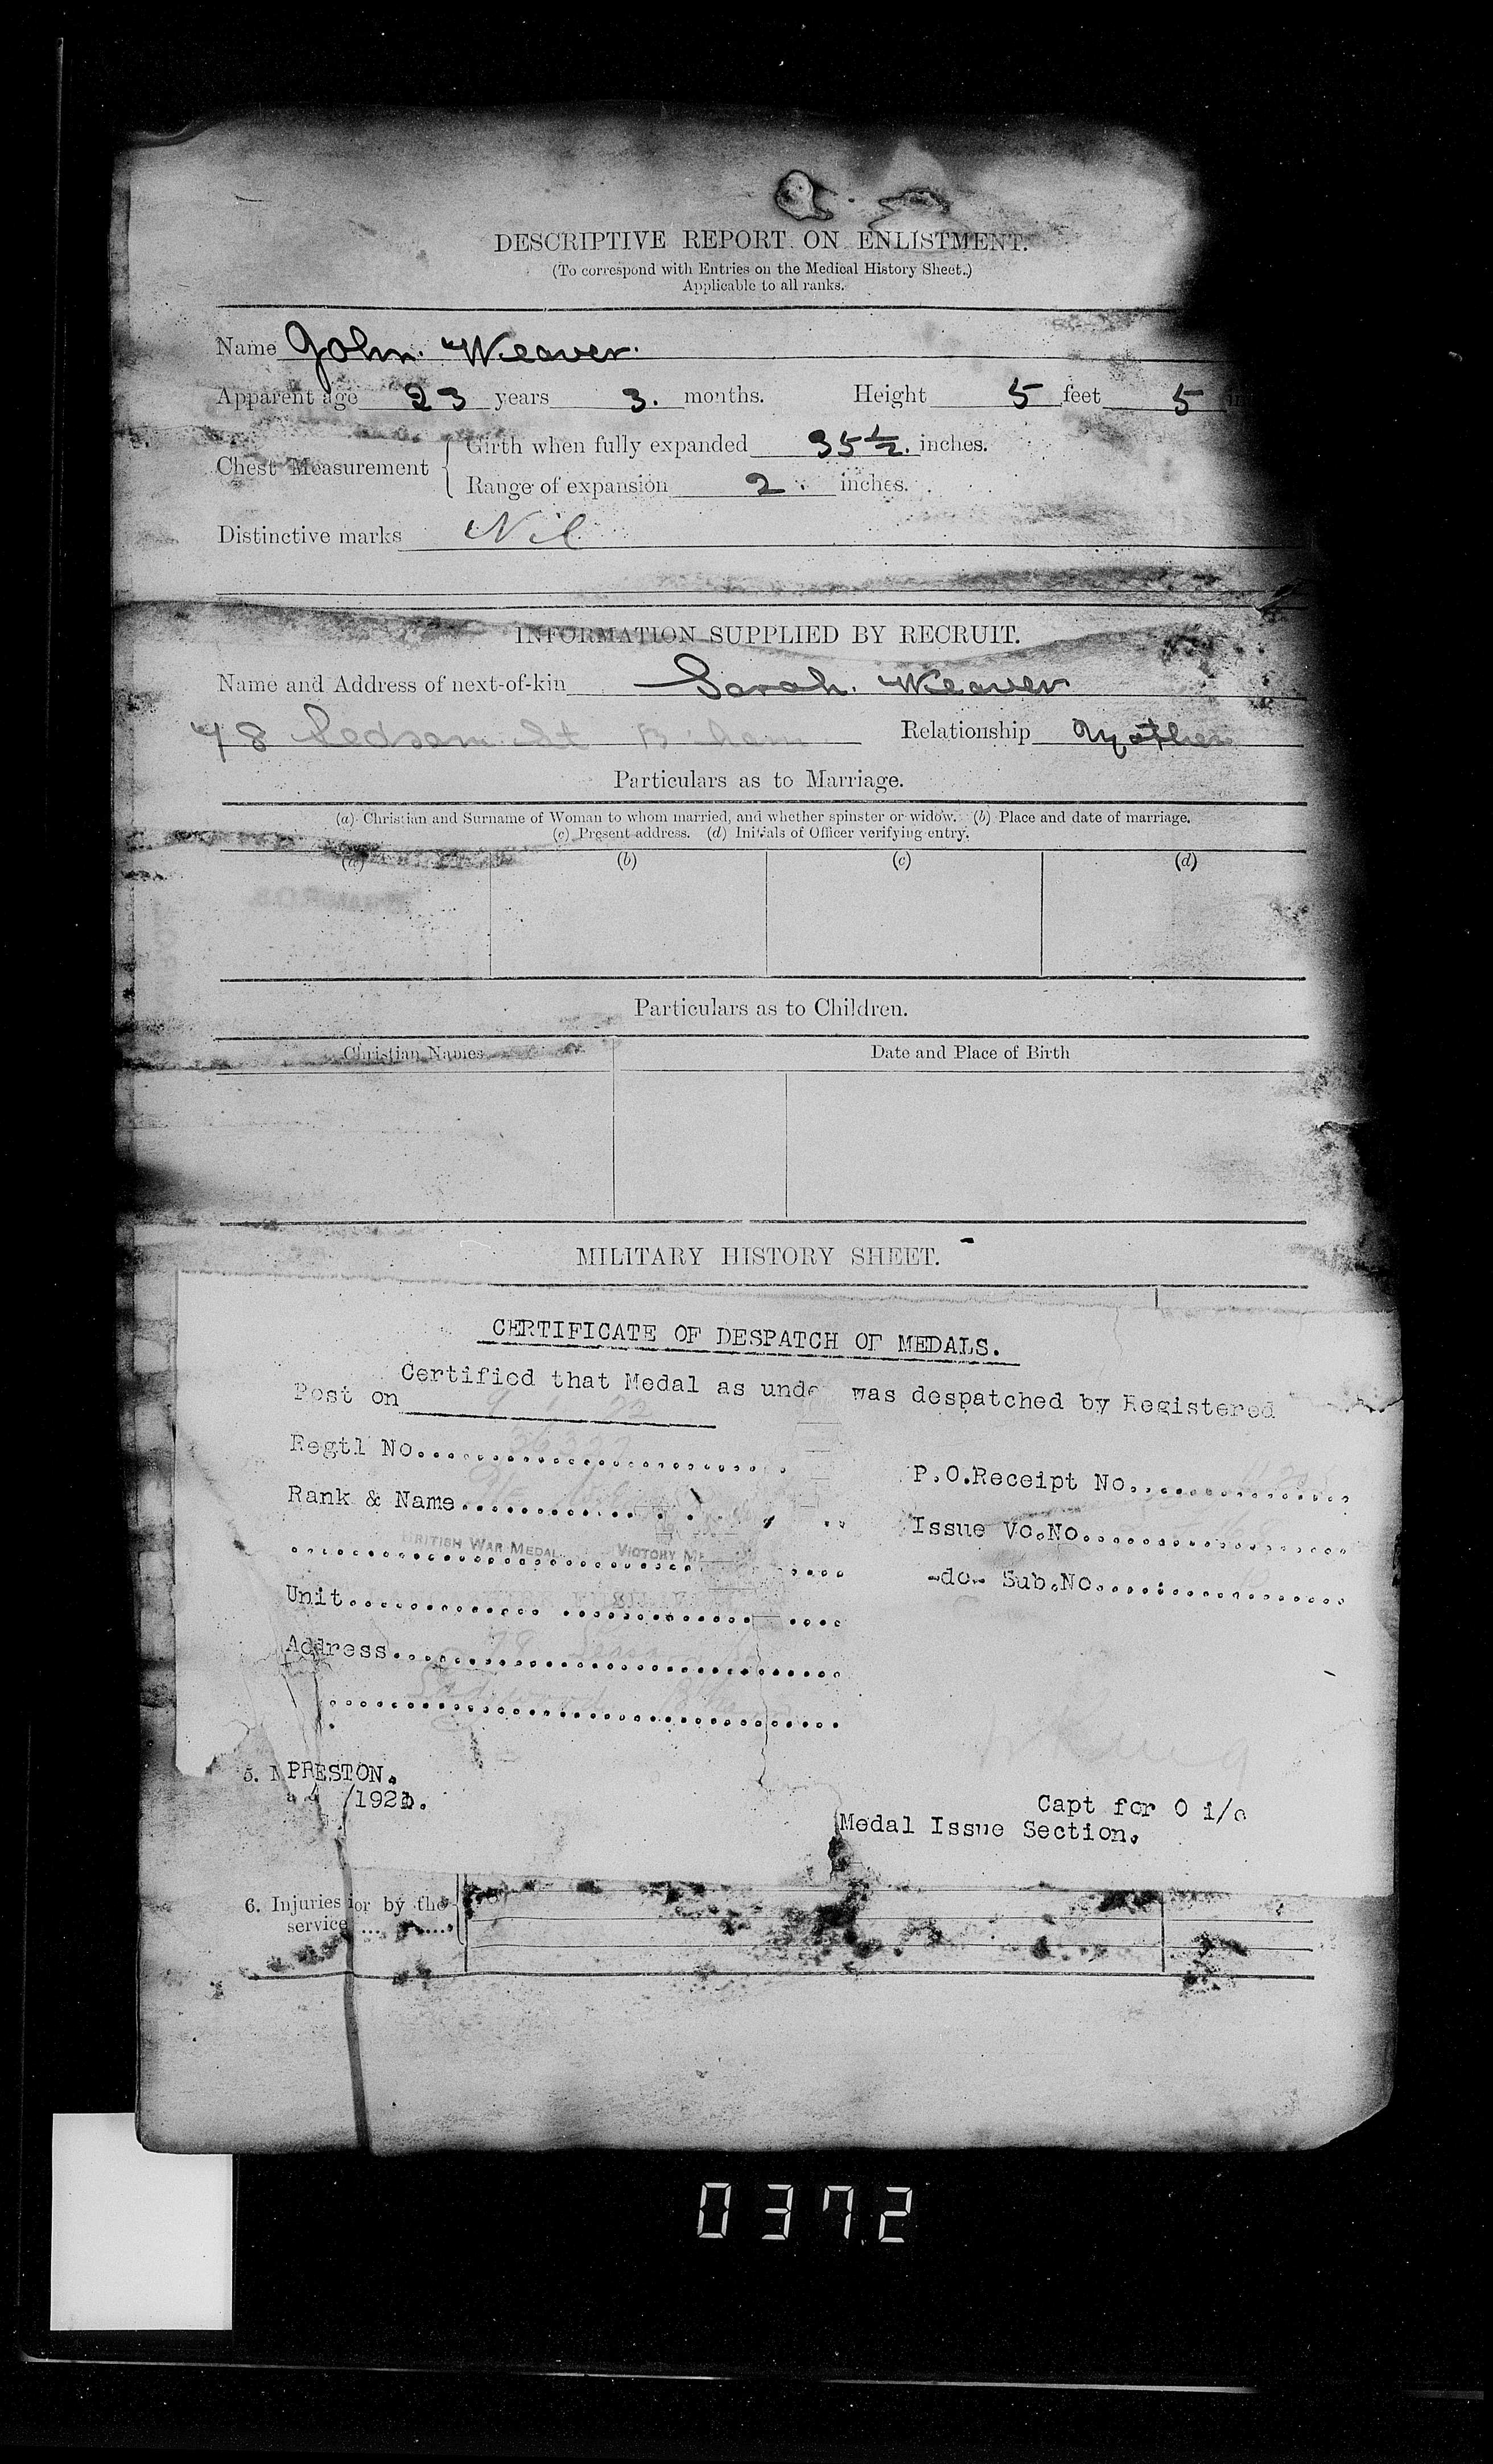 DESCRIPTIVE REPORT ON ENLISTMENT.
(To correspond with Entries on the Medical History Sheet.)
Applicable to all ranks.
Name John. Weaver.
Apparent age 23 years 3. months. Height 5 feet 5
Girth when fully expanded 35½. inches.
Chest Measurement
Range of expansion 2. inches.
Distinctive marks Nil
INFORMATION SUPPLIED BY RECRUIT.
Name and Address of next-of-kin Sarah. Weaver
St Relationship Mother
Particulars as to Marriage.
(a) Christian and Surname of Woman to whom married, and whether spinster or widow. (b) Place and date of marriage.
(c) Present address. (d) Initials of Officer verifying entry.
(a) (b) (c) (d)
Particulars as to Children.
Christian Names Date and Place of Birth
MILITARY HISTORY SHEET.
CERTIFICATE OF DESPATCH OF MEDALS.
Certified that Medal as unde was despatched by Registered
Post on 9 1 22
Regtl No. 36327
P.O.Receipt No.
Rank & Name
Issue Vo.No.
BRITISH WAR MEDAL VICTORY ME
-do- Sub.No.
Unit
Address 78
Ladywood
5. PRESTON.
/192
Capt for O i/c
Medal Issue Section.
6. Injuries in or by the
service
0372